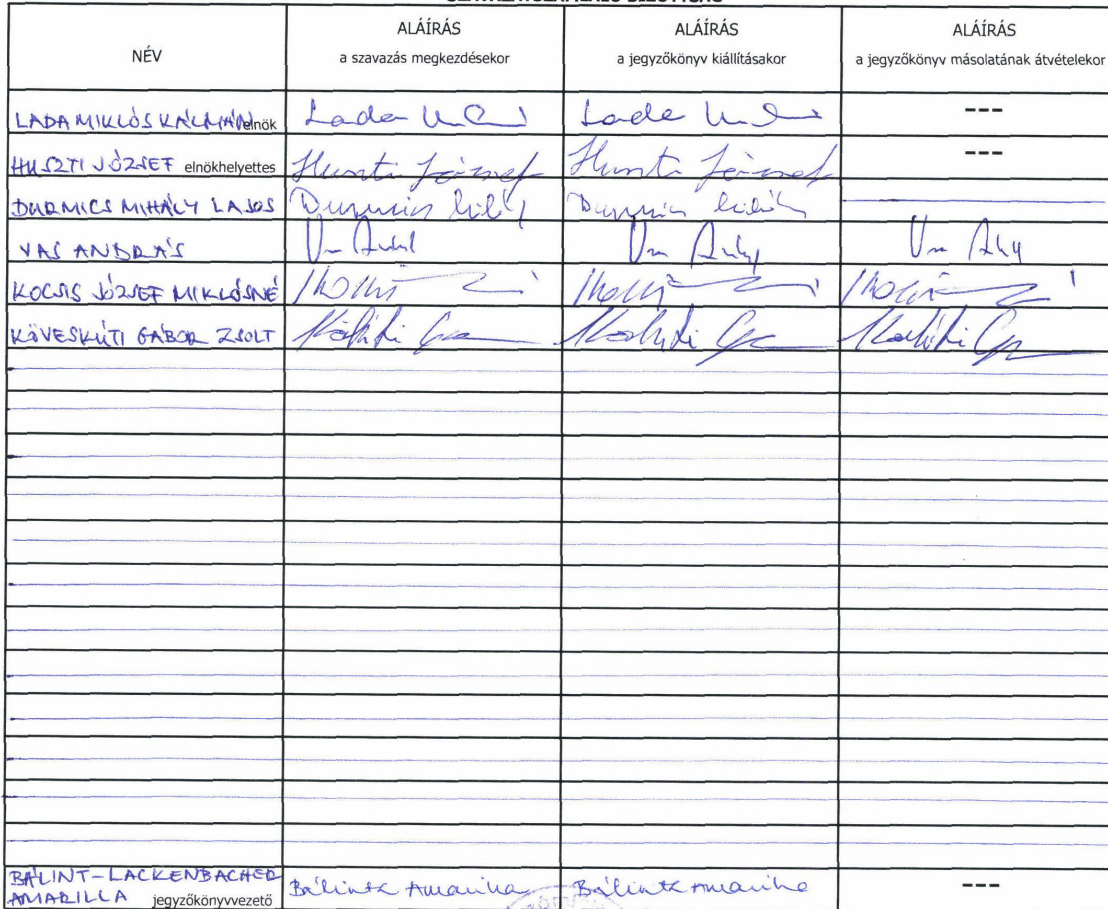 NÉV
ALÁÍRÁS
a szavazás megkezdésekor
ALÁÍRÁS
a jegyzőkönyv kiállításakor
ALÁÍRÁS
a jegyzőkönyv másolatának átvételekor
LADA MIKLÓS KÁLMÁN elnök Lada Lada ---
HUSZTI JÓZSEF elnökhelyettes Huszti József Huszti József ---
DURMICS MIHÁLY LAJOS Durmics Mihály Durmics Mihály
VAS ANDRÁS
KOCSIS JÓZSEF MIKLÓSNÉ
KÖVESKÚTI GÁBOR ZSOLT
BÁLINT-LACKENBACHER
AMARILLA jegyzőkönyvvezető Amarilla Amarilla ---